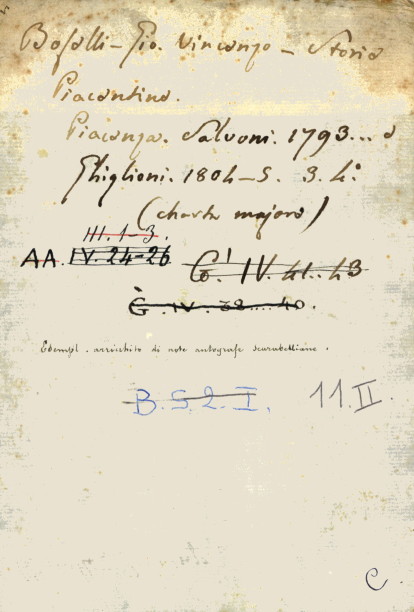 Bosalli - Gio. Vincenzo - Storia
Piacentina.
Piacenza. Salvoni. 1793...e
Ghiglioni. 1804-5. 3. 4°.
(charta majore)
III. 1-3.
AA. IV. 24-26
G' IV. 41..43
G. IV. 38....40.
Esempl. arricchito di note autografe scarabelliane.
B. S. 2. I.
11. II.
C.